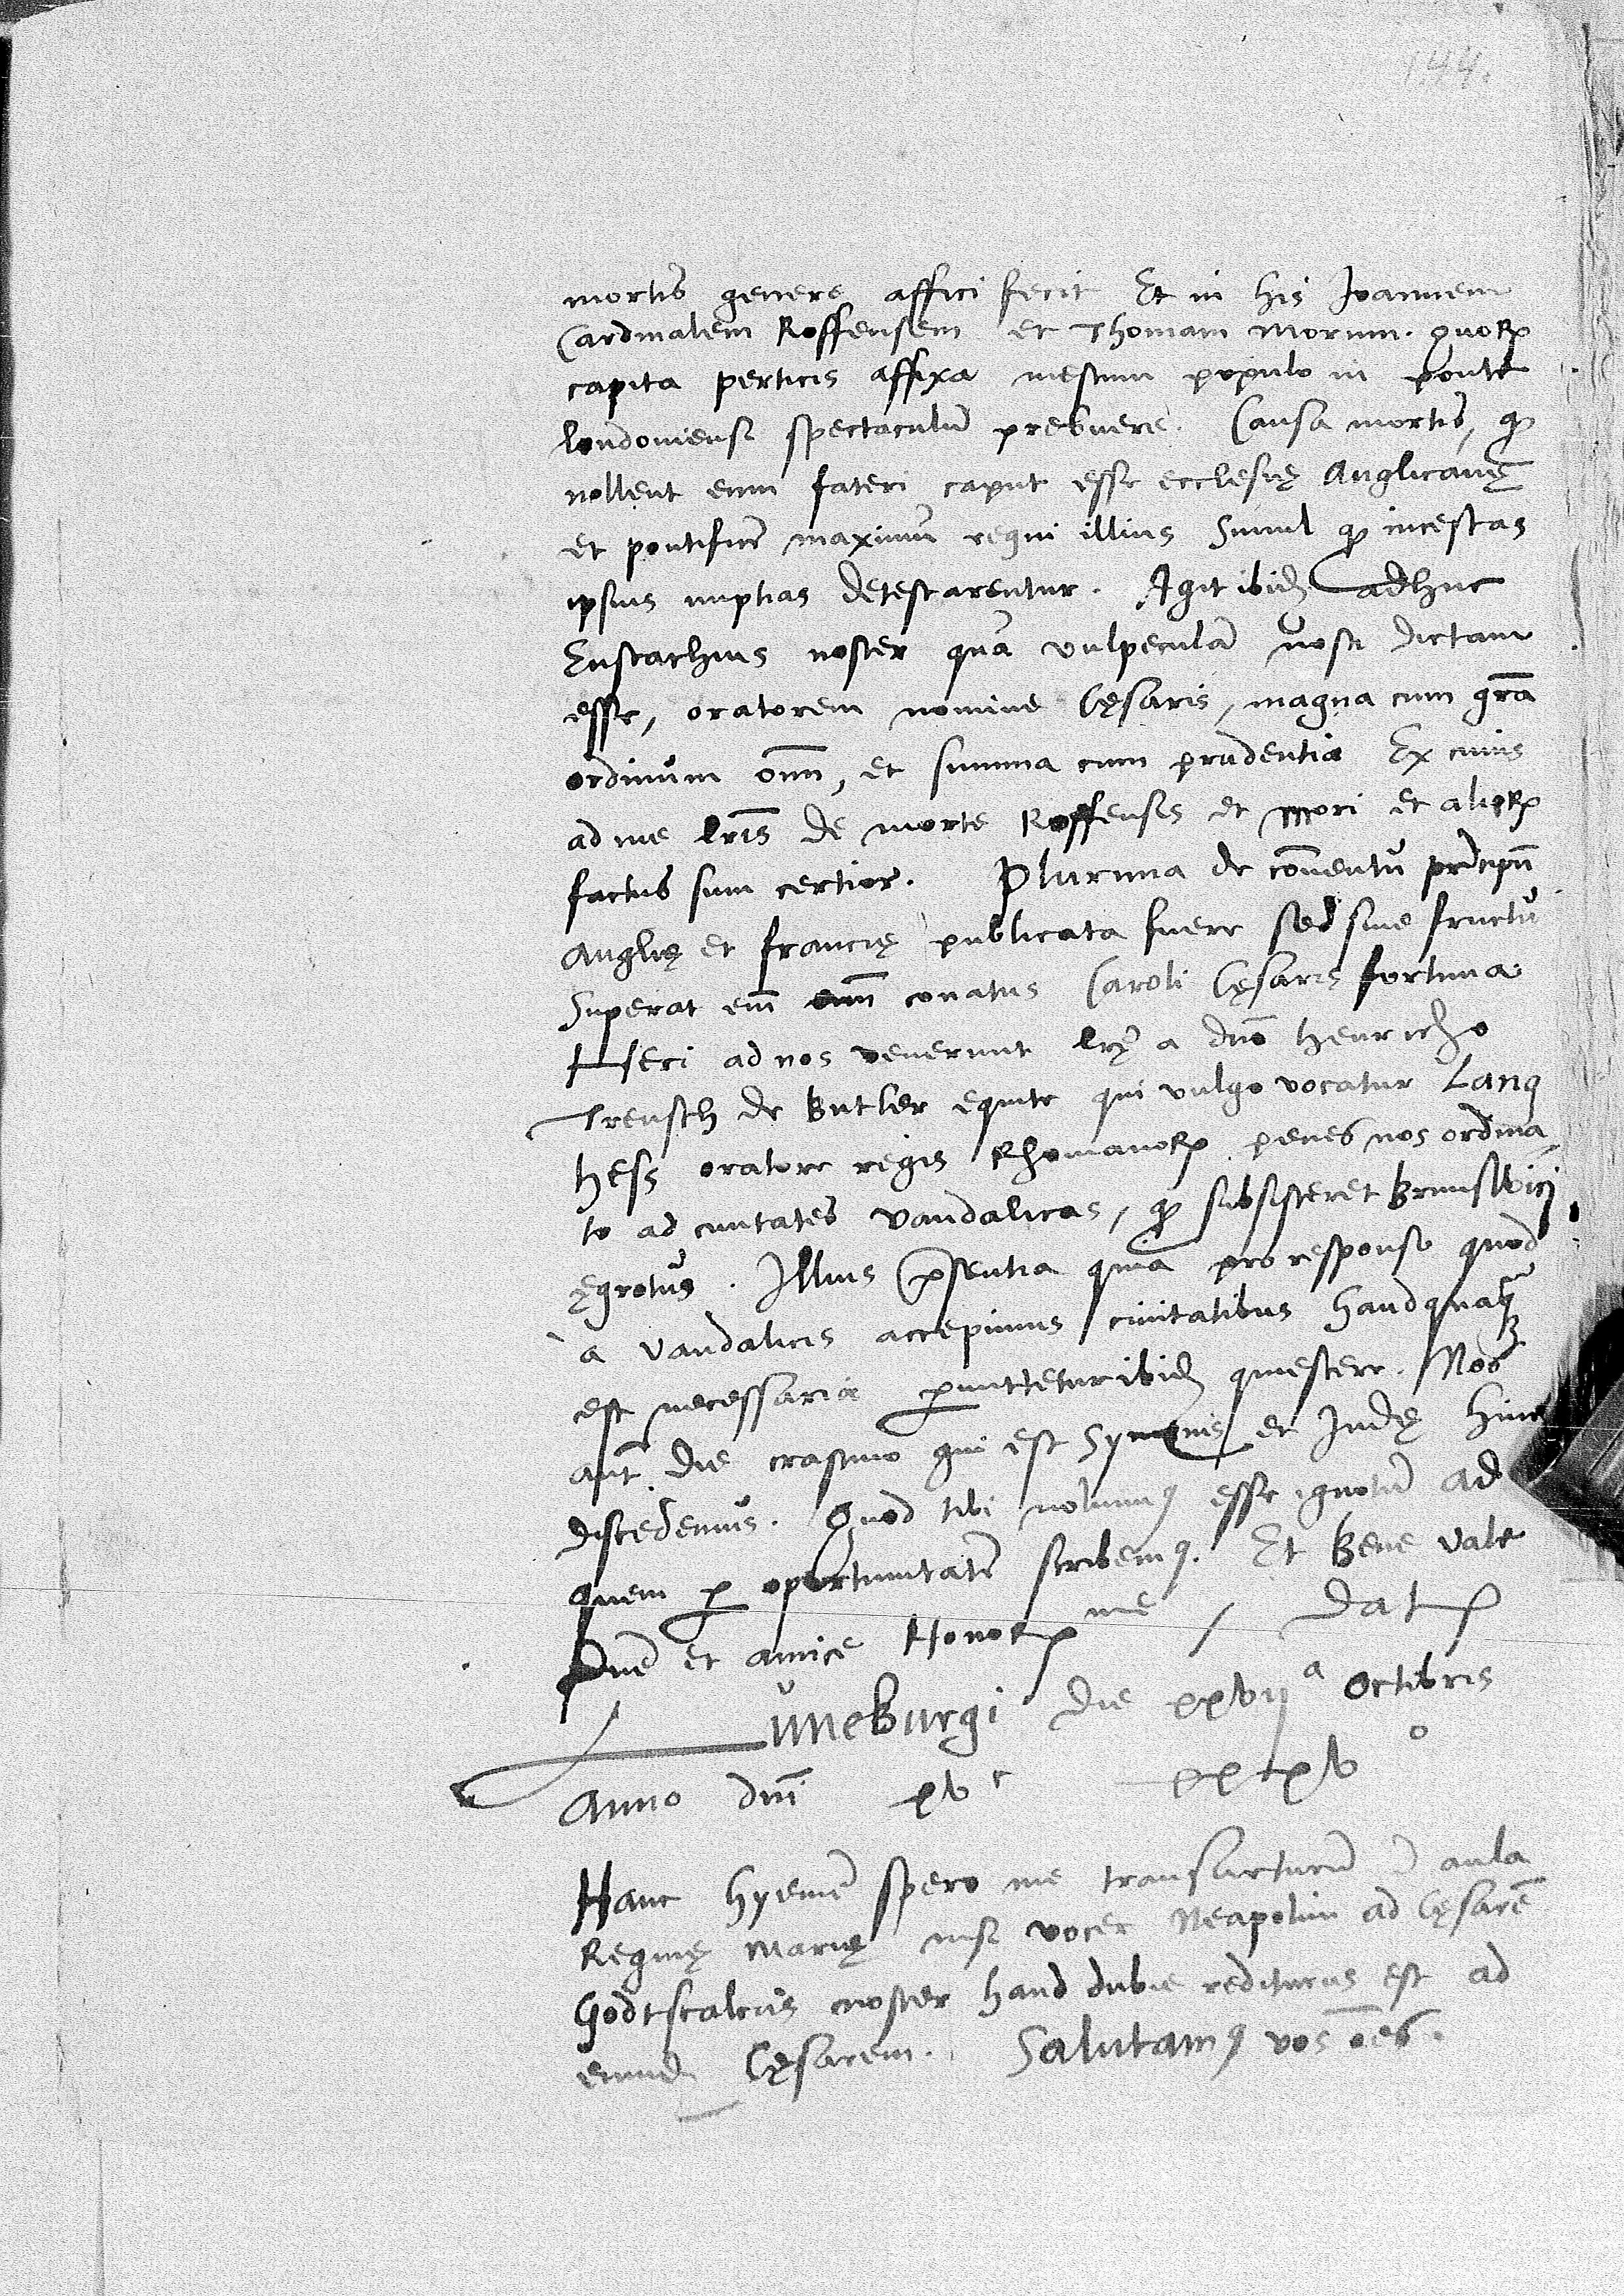 144.
mortis genere affici fecit Et in his Joannem
Cardinalem Roffensem et Thomam Morum. quoꝝ
capita perticis affixa mestum populo in ponte
londoniensi spectaculū prebuere. Causa mortis, ꝙ
nollent eum fateri caput esse ecclesię Anglicanę
et pontificē maximū regni illius Simul ꝙ incestas
ipsius nuptias detestarentur. Agit ibid adhuc
Eustachius noster quā vulpeculā nosti dictam
esse, oratorem nomine Cęsaris, magna cum gr̄a
ordinum om̄, et summa cum prudentia Ex cuius
ad me lr̄is de morte Roffensis et Mori et alioꝝ
factus sum certior. Plurima de cōuentu prīcipū
Anglię et francię publicata fuere sed sine fructu
Superat em̄ om̄ conatus Caroli Cęsaris fortuna.
Heri ad nos venerunt lr̄ę a dn̄o Henricho
Treusch de Butler equite qui vulgo vocatur Lang
Hess oratore regis Rhomanoꝝ penes nos ordina,
to ad ciuitates vandalicas, ꝙ subsisteret Brunswici
ęgrotus. Illius p̄sentia quia pro responso quod
à vandalicis accepimus ciuitatibus haudquaqȝ
est necessaria ꝑmittetur ibid quiescere. Nos
aut̄ die crastino qui est Symonis et Judę hinc
discedemus. Quod tibi nolumꝰ esse ignotū ad
quem ꝑ oportunitatē scribemꝰ. Et Bene vale
Dn̄e et amice Honoꝝ me / Datꝝ
Luneburgi die xxvij a Octobris
Anno dn̄i xv c xxxv o
Hanc hyemē spero me transacturū ī aula
Reginę Marię nisi vocer Neapolim ad Cęsarē
Godtscalcus noster haud dubie rediturus est ad
eund Cęsarem. Salutamꝰ vos oēs.